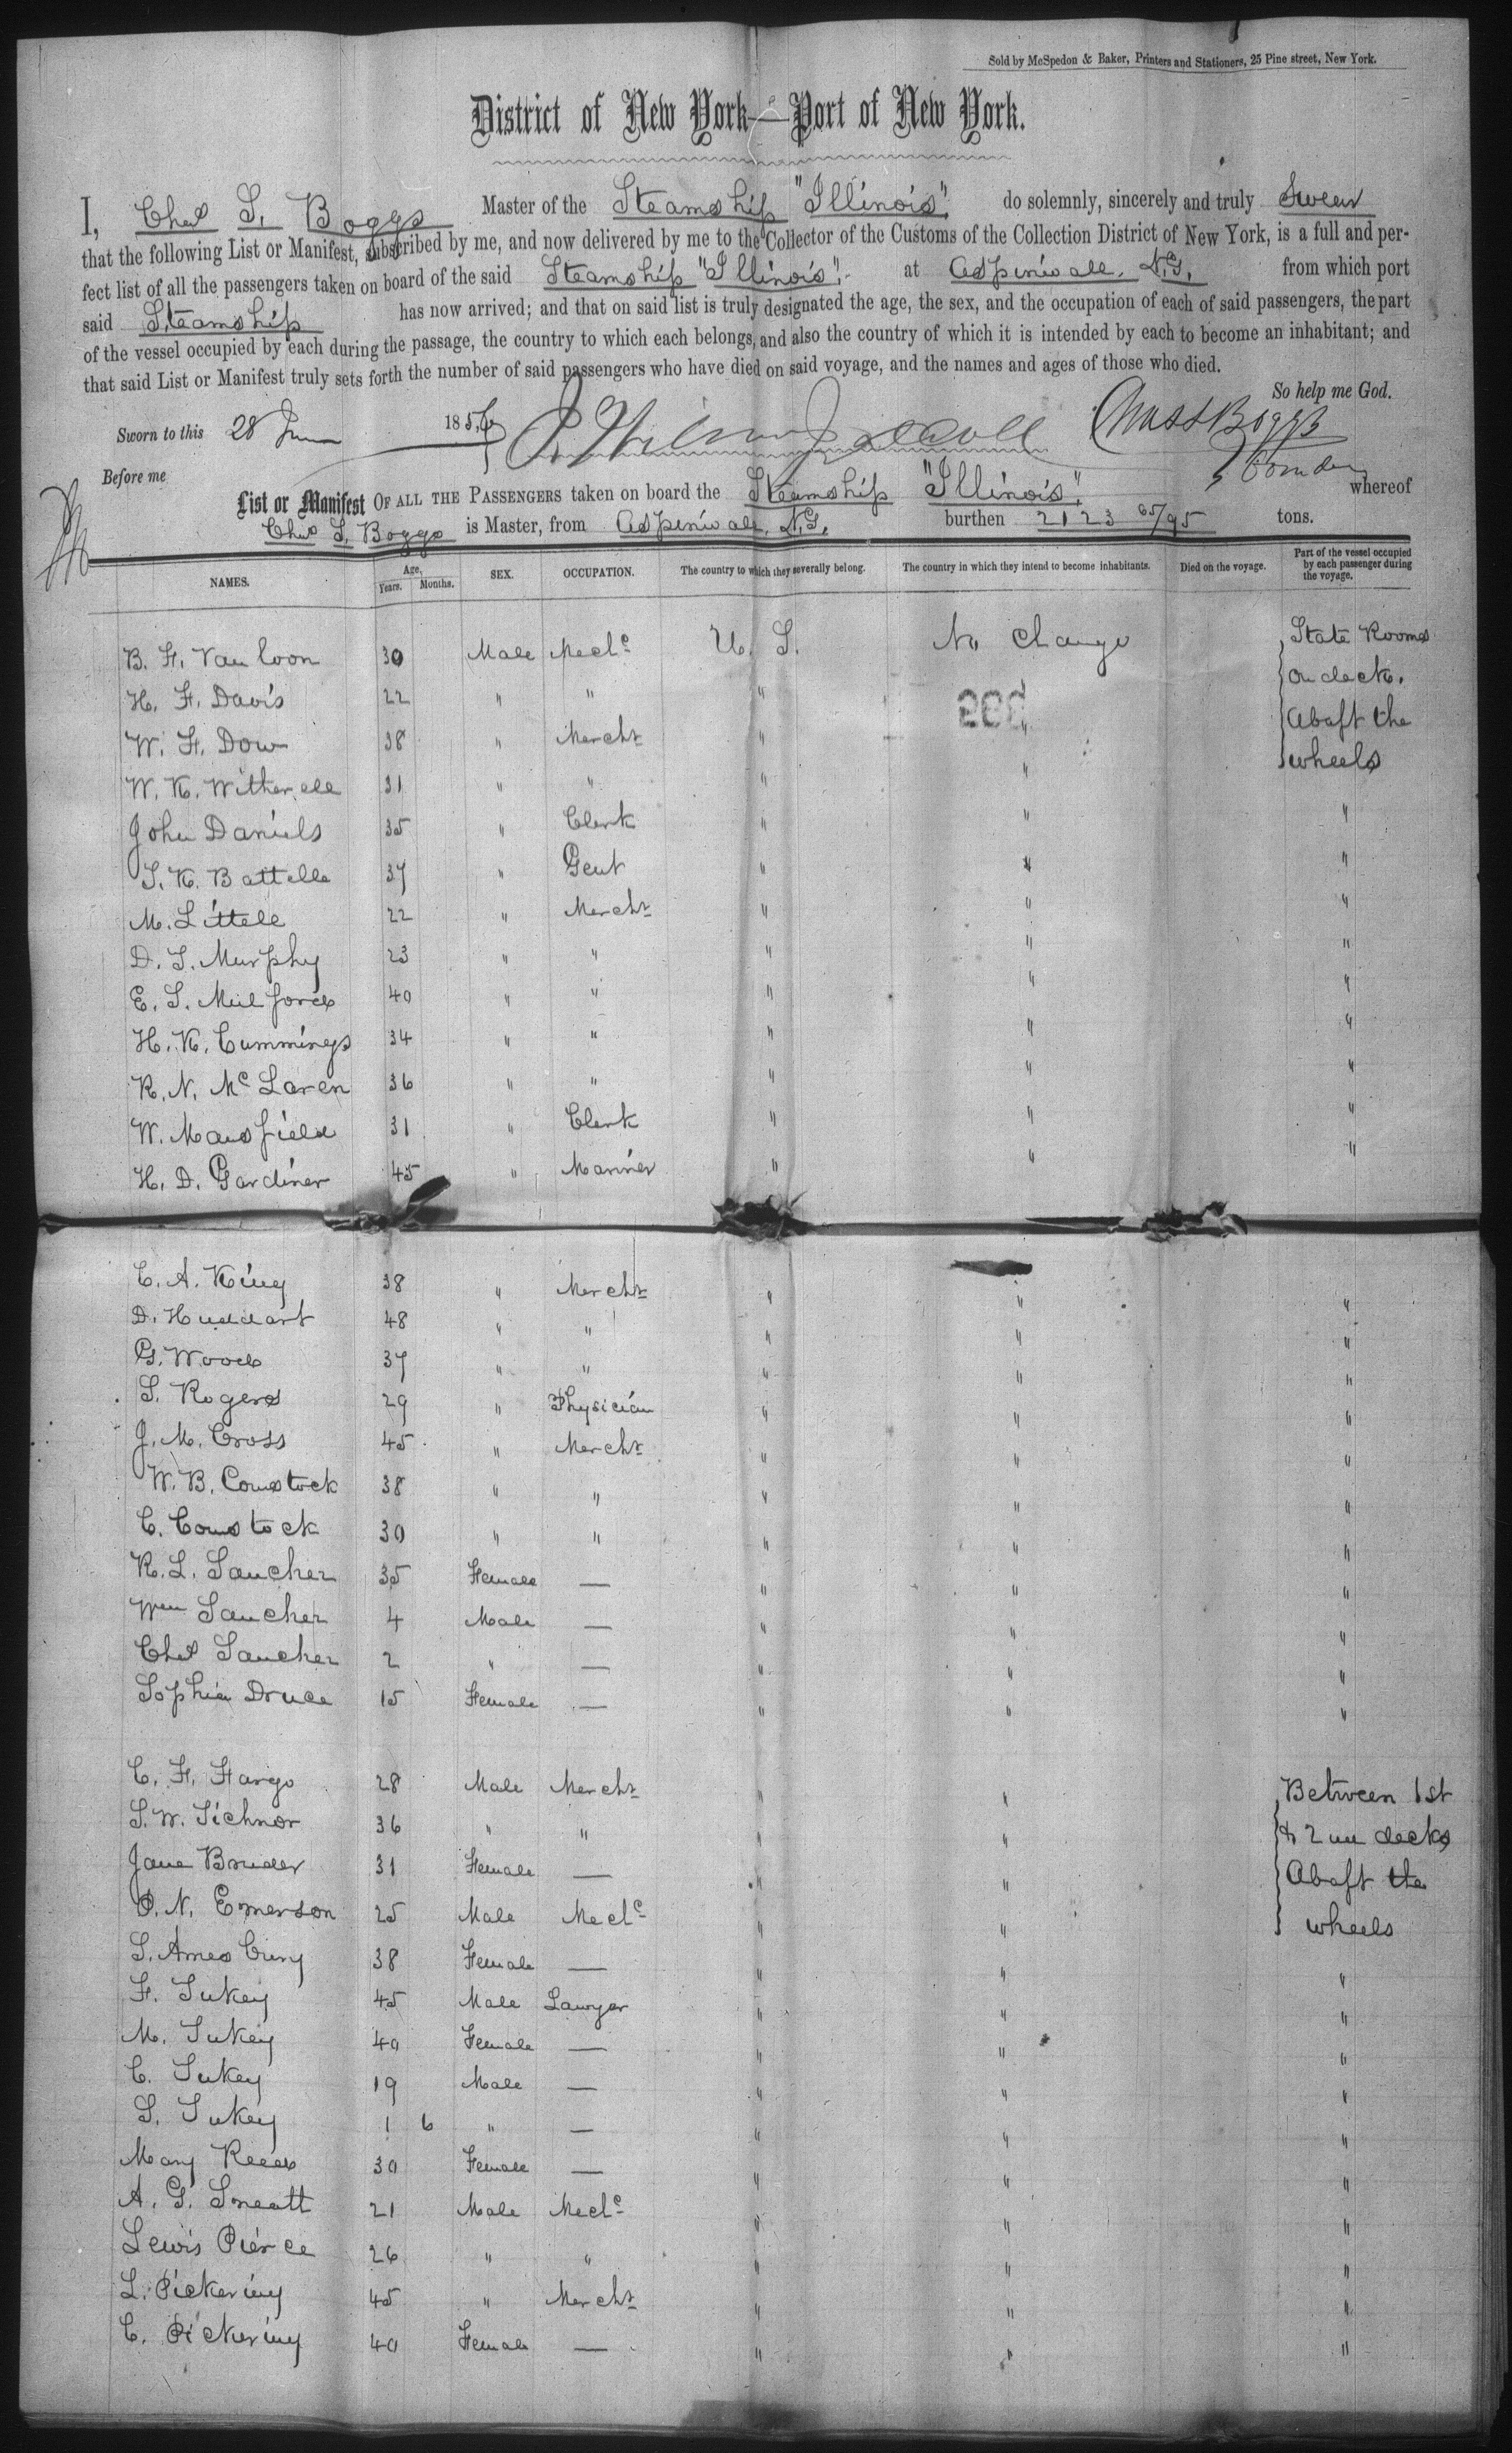 Sold by McSpedon & Baker, Printers and Stationers, 25 Pine street, New York.
District of New York—Port of New York.
I, Chas S. Boggs Master of the Steamship "Illinois", do solemnly, sincerely and truly Swear
that the following List or Manifest, subscribed by me, and now delivered by me to the Collector of the Customs of the Collection District of New York, is a full and per-
fect list of all the passengers taken on board of the said Steamship "Illinois", at Aspinwall, N.G. from which port
said Steamship has now arrived; and that on said list is truly designated the age, the sex, and the occupation of each of said passengers, the part
of the vessel occupied by each during the passage, the country to which each belongs, and also the country of which it is intended by each to become an inhabitant; and
that said List or Manifest truly sets forth the number of said passengers who have died on said voyage, and the names and ages of those who died.
So help me God.
Sworn to this 28 June 1856 Chas S Boggs
Before me Comdr
List or Manifest OF ALL THE PASSENGERS taken on board the Steamship "Illinois", whereof
Chas S. Boggs is Master, from Aspinwall, N.G. burthen 2123 65/95 tons.
NAMES. Age. Years. Months. SEX. OCCUPATION. The country to which they severally belong. The country in which they intend to become inhabitants. Died on the voyage. Part of the vessel occupied by each passenger during the voyage.
B. F. Van loon 30 Male Mechc U. S. No Change State Rooms
H. F. Davis 22 " " " " on deck.
W. F. Dow 38 " Mercht " " Abaft the
W. K. Witherell 31 " " " " wheels
John Daniels 35 " Clerk " " "
S. K. Battelle 37 " Gent " " "
M. Littell 22 " Mercht " " "
D. S. Murphy 23 " " " " "
E. S. Milford 40 " " " " "
H. K. Cummings 34 " " " " "
R. N. Mc Laren 36 " " " " "
W. Mansfield 31 " Clerk " " "
H. D. Gardiner 45 " Mariner " " "
C. A. King 38 " Mercht " " "
D. Huddart 48 " " " " "
G. Wood 37 " " " " "
S. Rogers 29 " Physician " " "
J. M. Cross 45 " Mercht " " "
W. B. Comstock 38 " " " " "
C. Comstock 30 " " " " "
R. L. Saucher 35 Female — " " "
Wm Saucher 4 Male — " " "
Chas Saucher 2 " — " " "
Sophia Druce 15 Female — " " "
C. F. Fargo 28 Male Mercht " " Between 1st
S. W. Tichnor 36 " " " " & 2nd decks
Jane Bruder 31 Female — " " Abaft the
O. N. Emerson 25 Male Mechc " " wheels
S. Ames 38 Female — " " "
F. Tukey 45 Male Lawyer " " "
M. Tukey 40 Female — " " "
C. Tukey 19 Male — " " "
S. Tukey 1 6 " — " " "
Mary Reed 30 Female — " " "
A. G. Sneatt 21 Male Mechc " " "
Lewis Pierce 26 " " " " "
L. Pickering 45 " Mercht " " "
C. Pickering 40 Female — " " "